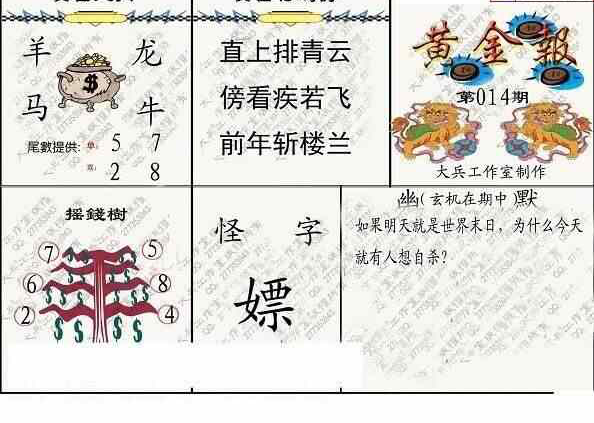 羊 龙
马 牛
尾數提供: 单: 5 7
双: 2 8
直上排青云
傍看疾若飞
前年斩楼兰
黄金報
第014期
大兵工作室制作
摇錢樹
7 5
6 8
2 4
怪 字
嫖
幽(玄机在期中)默
如果明天就是世界末日，为什么今天
就有人想自杀？